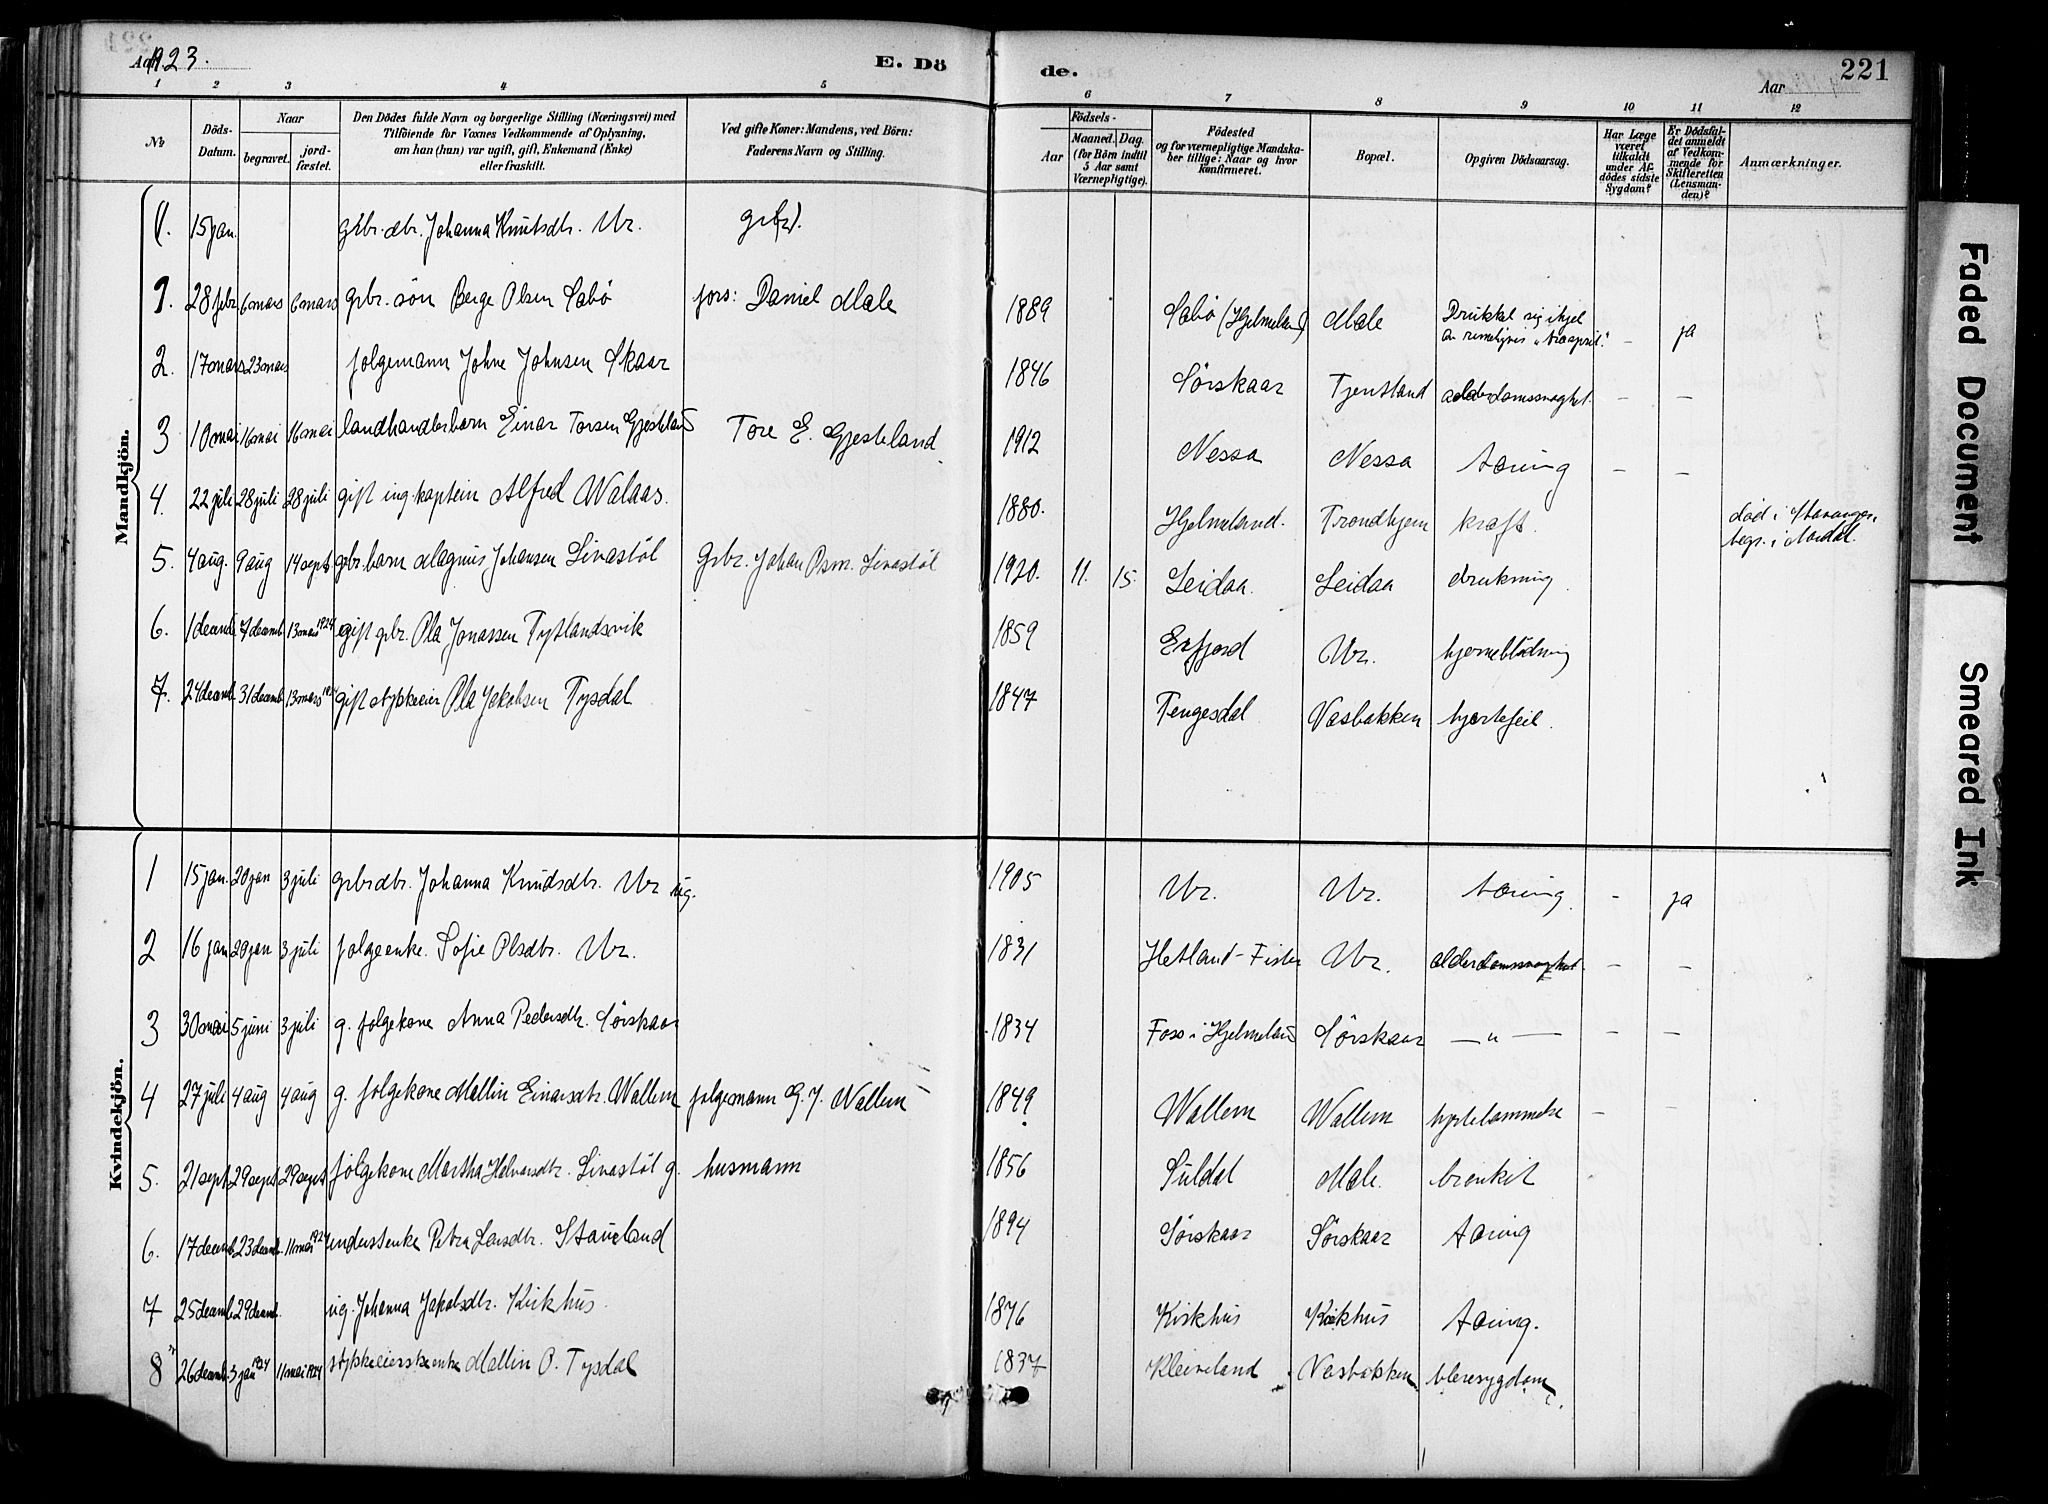 Aar 1923.
E. Dö
de.
Aar
221
1 2 3 4 5 6 7 8 9 10 11 12
No
Döds-Datum.
Naar
begravet.
jord-fæstet.
Den Dödes fulde Navn og borgerlige Stilling (Næringsvei) med
Tilföiende for Voxnes Vedkommende af Oplysning,
om han (hun) var ugift, gift, Enkemand (Enke)
eller fraskilt.
Ved gifte Koner: Mandens, ved Börn:
Faderens Navn og Stilling.
Födsels-
Aar
Maaned. Dag.
(for Börn indtil
5 Aar samt
Værnepligtige).
Födested
og for værnepligtige Mandska-
ber tillige: Naar og hvor
konfirmeret.
Bopæl.
Opgiven Dödsaarsag.
Har Læge
været
tilkaldt
under Af-
dödes sidste
Sygdom?
Er Dödsfal-
det anmeldt
af Vedkom-
mende for
Skifteretten
(Lensman-
den)?
Anmærkninger.
Mandkjön.
1. 15 jan. gbr. dtr. Johanna Knutsdtr. Ur.
1. 28 febr 6 mars 6 mars gbr. sön Berge Olsen Sabö fors: Daniel Male 1889 Sabö (Hjelmeland) Male Drukket sig ihjel – ja
2. 17 mars 23 mars folgemann Johne Johnsen Skaar 1846 Sörskaar Tjentland alderdomssvaghet. – –
3 10 mai 16 mai 16 mai landhandlerbarn Einar Torsen Gjesteland Tore E. Gjesteland 1912 Nessa Nessa tæring – –
4. 22 juli 28 juli 28 juli gift ing. kaptein Alfred Walaas. 1880. Hjelmeland. Trondhjem kræft. död i Stavanger.
5. 4 aug. 9 aug 14 sept gbr. barn Magnus Johansen Livastöl Gbr. Johan Osm. Livastöl 1920. 11. 15. Leidaa. Leidaa drukning
6. 1 decemb. 7 decemb. 13 mars 1924 gift gbr. Ola Jonassen Tytlandsvik 1859 Erfjord Ur. hjerneblödning
7. 24 decemb. 31 decemb. 13 mars 1924 gift stykkeeier Ola Jakobsen Tysdal 1847 Tengesdal Vasbakken hjertefeil.
Kvindekjön.
1 15 jan. 20 jan 3 juli gbrdtr. Johanna Knudsdtr. Ur ug. 1905 Ur. Ur. tæring. – ja
2 16 jan 20 jan 3 juli folgeenke. Sofie Olsdtr. Ur. 1831 Hetland-Fister Ur. alderdomssvaghet. – –
3 30 mai 5 juni 3 juli g. folgekone Anna Pedersdtr. Sörskaar 1834 Foss i Hjelmeland Sörskaar —„— – –
4 27 juli 4 aug 4 aug g. folgekone Mallin Einarsdtr. Wallem folgemann G. J. Wallem 1849 Wallem Wallem hjertelammelse – –
5. 21 sept 29 sept 29 sept folgekone Martha Halvarsdtr. Livastöl g. husmann 1856 Suldal Male. bronkit
6. 17 decemb. 23 decemb. 11 mai 1924 Petra Larsdtr. Staveland 1894 Sörskaar Sörskaar tæring
7 25 decemb. 29 decemb. ug. Johanna Jakobsdtr. Kirkhus. 1876 Kirkhus Kirkhus tæring.
8 26 decemb. 3 jan 1924 11 mai 1924 stykkeeiersenke Mallin O. Tysdal 1837 Kleiveland Vasbakken blæresygdom
Faded Document
Smeared Ink